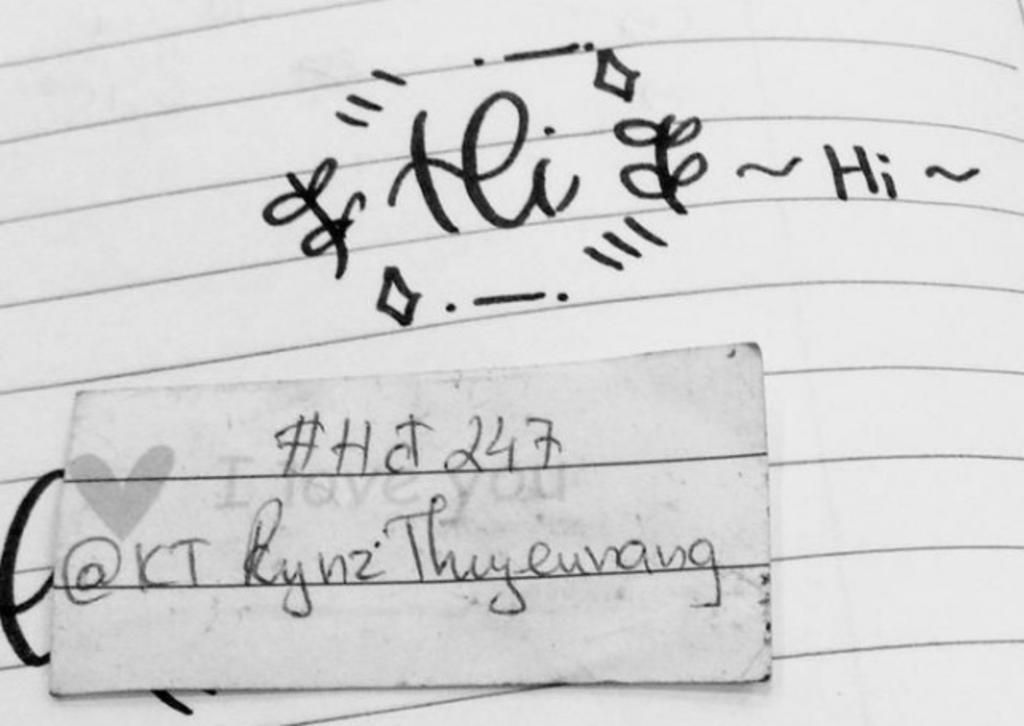 Hi ~ Hi ~
#Hđ 247
I love you
@KT Rynz Thuyeunang